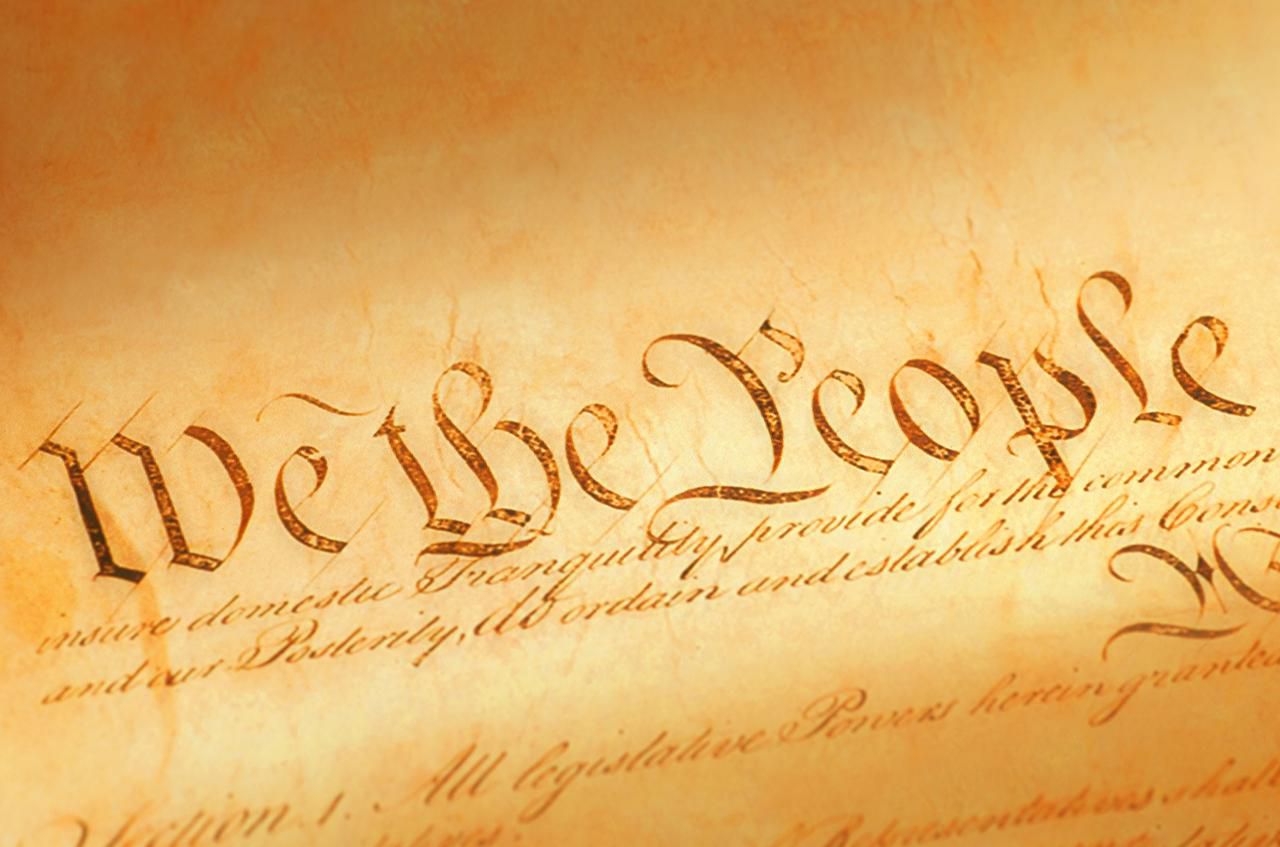 We the People
insure domestic Tranquility, provide for the common
and our Posterity, do ordain and establish this Cons
Section. 1. All legislative Powers herein granted
Representatives shall